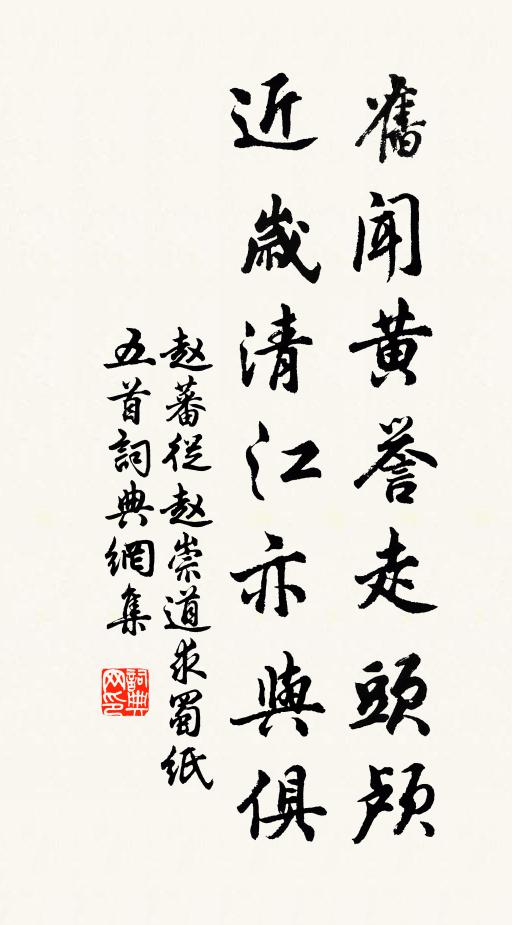 舊聞黄譽走頭顱
近歲清江亦與俱
赵蕃從赵崇道求蜀紙
五首詞典網集
詞典网印